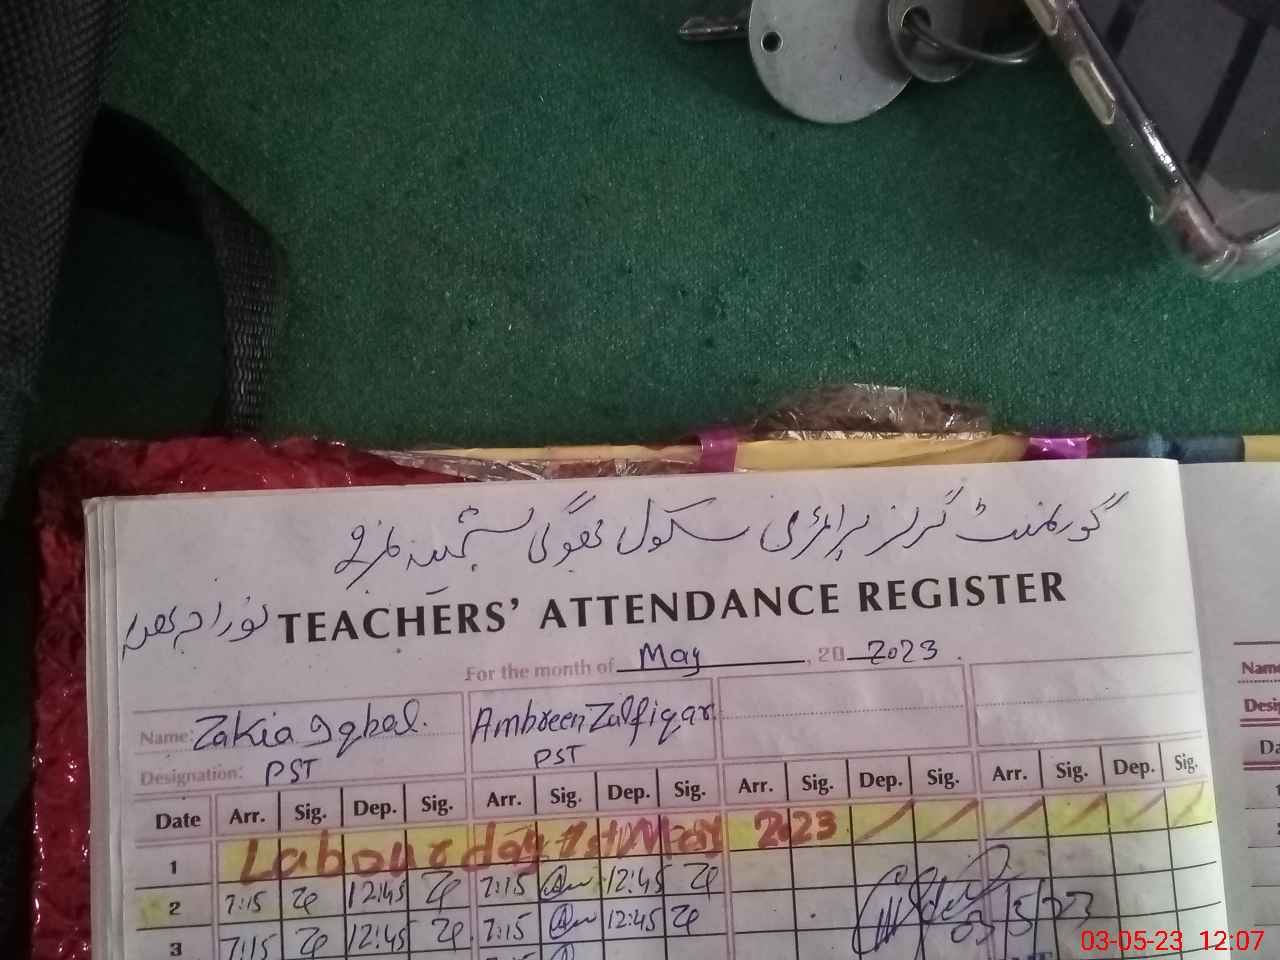 گورنمنٹ گرلز پرائمری سکول بھوگی شمینہ نمبر 2
TEACHERS' ATTENDANCE REGISTER
For the month of May, 20 2023.
Name: Zakia Iqbal. Ambreen Zulfiqar.
Designation: PST PST
Date Arr. Sig. Dep. Sig. Arr. Sig. Dep. Sig. Arr. Sig. Dep. Sig. Arr. Sig. Dep. Sig.
1 Labour day 1st May 2023
2 7:15 12:45 7:15 12:45
3 7:15 12:45 7:15 12:45
03/5/23
Name
Desig
Da
03-05-23 12:07